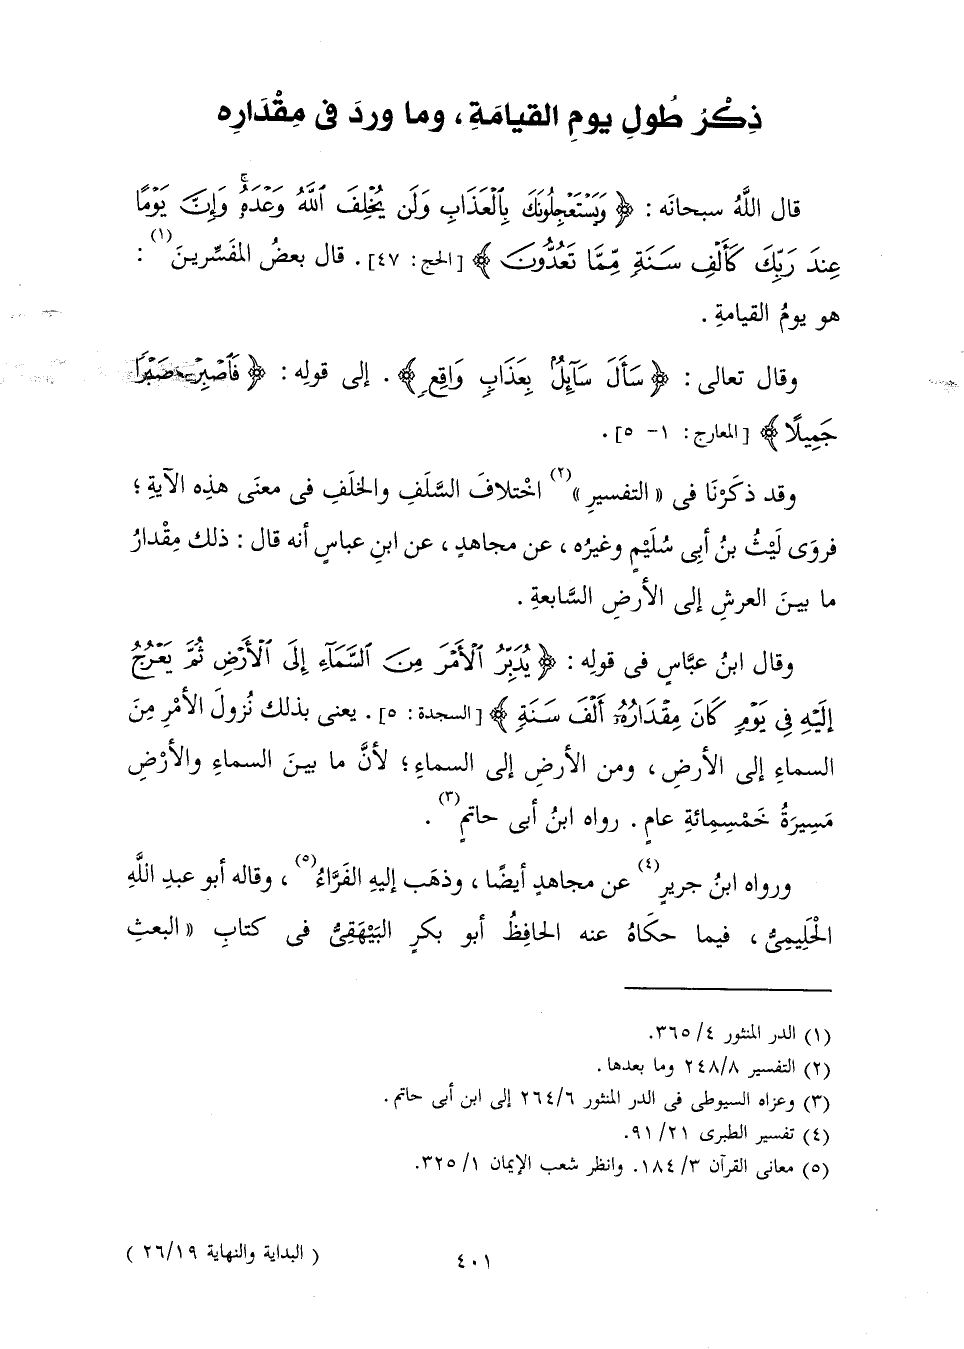 ذِكْرُ طُولِ يومِ القيامَةِ، وما وردَ فى مِقْدَارِه
قال اللَّهُ سبحانَه : ﴿ وَيَسْتَعْجِلُونَكَ بِٱلْعَذَابِ وَلَن يُخْلِفَ ٱللَّهُ وَعْدَهُۥۚ وَإِنَّ يَوْمًا
عِندَ رَبِّكَ كَأَلْفِ سَنَةٍ مِّمَّا تَعُدُّونَ ﴾ [ الحج: ٤٧] . قال بعضُ المفَسِّرينَ(١) :
هو يومُ القيامةِ .
وقال تعالى : ﴿ سَأَلَ سَآئِلٌۢ بِعَذَابٍ وَاقِعٍ ﴾ . إلى قولِه : ﴿ فَٱصْبِرْ صَبْرًا
جَمِيلًا ﴾ [ المعارج: ١- ٥] .
وقد ذكَرْنَا فى « التفسيرِ »(٢) اخْتلافَ السَّلَفِ والخلَفِ فى معنَى هذه الآيةِ ؛
فروَى لَيْثُ بنُ أبِى سُلَيْمٍ وغيرُه ، عن مجاهدٍ ، عن ابنِ عباسٍ أنه قال : ذلك مِقْدارُ
ما بينَ العرشِ إلى الأرضِ السَّابعةِ .
وقال ابنُ عبَّاسٍ فى قولِه : ﴿ يُدَبِّرُ ٱلْأَمْرَ مِنَ ٱلسَّمَآءِ إِلَى ٱلْأَرْضِ ثُمَّ يَعْرُجُ
إِلَيْهِ فِى يَوْمٍ كَانَ مِقْدَارُهُۥٓ أَلْفَ سَنَةٍ ﴾ [ السجدة: ٥] . يعنى بذلك نُزولَ الأمْرِ مِنَ
السماءِ إلى الأرضِ ، ومن الأرضِ إلى السماءِ ؛ لأنَّ ما بينَ السماءِ والأرْضِ
مَسِيرَةُ خَمْسِمِائةِ عامٍ . رواه ابنُ أبى حاتمٍ(٣) .
ورواه ابنُ جريرٍ(٤) عن مجاهدٍ أيضًا ، وذهَب إليهِ الفَرَّاءُ(٥) ، وقاله أبو عبدِ اللَّهِ
الحْلَيمِىُّ ، فيما حكَاهُ عنه الحافِظُ أبو بكرٍ البَيْهَقِىُّ فى كتابِ « البعثِ
(١) الدر المنثور ٤/ ٣٦٥.
(٢) التفسير ٢٤٨/٨ وما بعدها .
(٣) وعزاه السيوطى فى الدر المنثور ٢٦٤/٦ إلى ابن أبى حاتم .
(٤) تفسير الطبرى ٢١/ ٩١.
(٥) معانى القرآن ٣/ ١٨٤. وانظر شعب الإيمان ١/ ٣٢٥.
٤٠١
( البداية والنهاية ٢٦/١٩ )